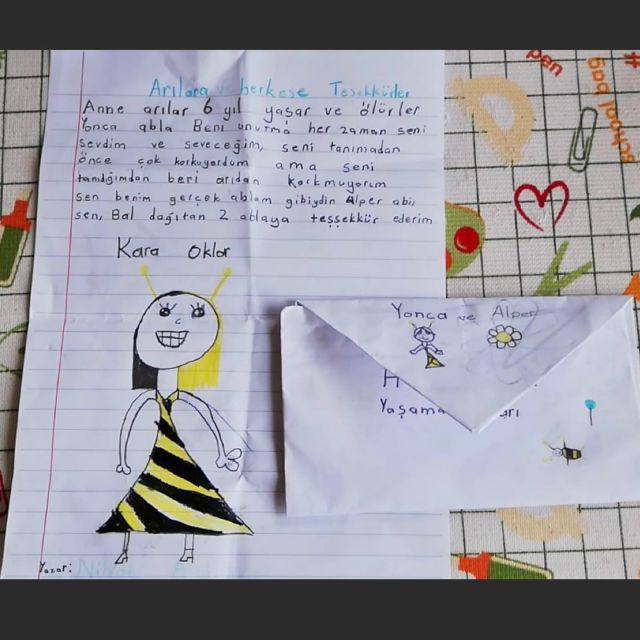 Arılara, herkese Teşekkürler
Anne arılar 6 yıl yaşar ve ölürler
Yonca abla Beni unutma her zaman seni
sevdim ve seveceğim, seni tanımadan
önce çok korkuyordum ama seni
tanıdığımdan beri arıdan korkmuyorum
sen benim gerçek ablam gibiydin Alper abi,
sen, Bal dağıtan 2 ablaya teşşekkür ederim
Kara Oklar
Yazar:
Yonca ve Alper
pen
school bag